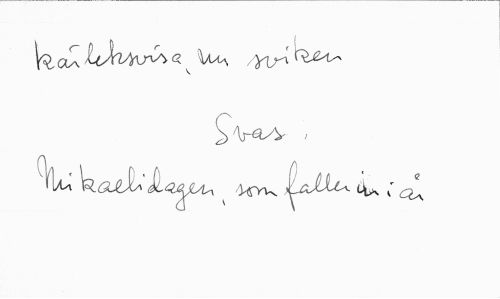 kärleksvisa, un sviken
Svas.
Mikaelidagen, som faller in i år